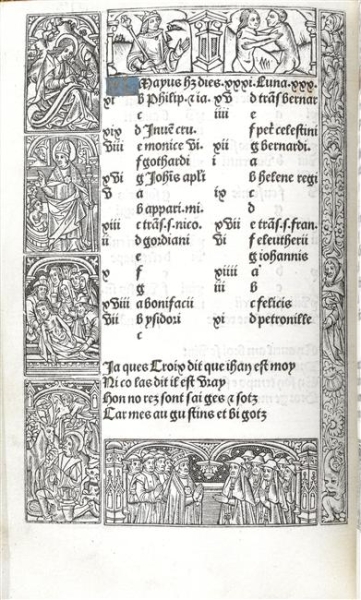 Mayus hz dies. xxxi. Luna. xxx.
xi b Philip. ⁊ ia.
c
xix d Inuē cru.
viii e monice vi.
f gothardi
xvi g Johis apli
v a
b appari. mi.
xiii c trās. s. nico.
ii d gordiani
e
x f
g
xviii a bonifacii
vii b ysidori
c
xv d trās bernar
iiii e
f pet celestini
xii g bernardi.
i
b helene regi
ix c
d
xvii e trās. s. fran.
vi f eleutherii
g iohannis
xiiii a
iii b
c felicis
xi d petronille
Ja ques Croix dit que ihan est moy
Ni co las dit il est vray
Hon no rez sont sai ges ⁊ sotz
Car mes au gu stins et bi gotz